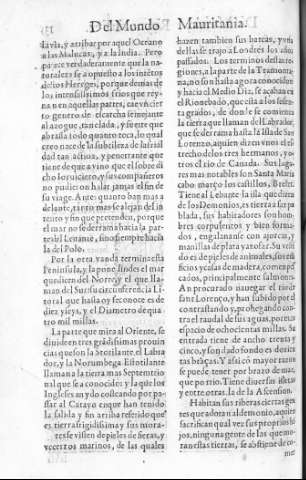 Del Mundo Mauritania.
la vía, y arribar por aquel Oceano
a las Malucas, y a la India. Pero
parece verdaderamente que la na-
turaleza se a opuesto a los
Hereges, porque demas de
los intensissimos frios que rey-
na en aquellas partes, cae vn cier
to genero de escarcha semejante
al azogue,
abrasa todo quanto toca, la qual
creo nace de la subtileza de la frial
dad tan actiua, y penetrante que
tiene de que a vino que el sobre di
cho los vizcierto, y sus compañeros
no pudieron hallar jamas el fin de
su viage. Antes quanto ban mas a
delante, tanto mas se alejan del in
tento y fin que pretenden, porque
el mar no se derrama hàcia la par-
te del Leuante, sino siempre hàcia
la del Polo.
Por la otra vanda termina esta
Peninsula, y la pone lindes el mar
que dizen del Norte, y el que lla-
man del Sur su circunferencia Li-
toral que hasta oy se conoce es de
diez y seys, y el Diametro de qua
tro mil millas.
La parte que mira al Oriente, se
diuide en tres grãdissimas prouin
cias que son la Estotilante, el Labra
dor, y la Norumbega. Estotilante
llamanã la tierra mas Septemtrio
nal que se a conocido: y la que los
Ingleses an ydo costeando por pas
sar al Catayo en que han tenido
la salida y fin arriba referido que
es tierra frigidissima y sus mora-
tes se visten de pieles de fieras, y
vezerros marinos, de las quales
hazen tambien sus barcas, y vna
dellas se trajo a Londres los años
passados. Los terminos desta re-
giones, a la parte de la Tramonta-
na, no son hasta agora conocidos
y hàcia el Medio Dia, se açaban en
el Rio nebado, que està a los sesen
ta grados, de donde se comiença
la tierra que llaman del Labrador,
que se derrama hasta la Isla de San
Lorenço, a quien dizen vnos el es-
trecho de los tres hermanos, y o-
tros el rio de Canada. Sus luga-
res mas notables son Santa Maria
cabo: março los castillos, Brest.
Tiene al Lebante la isla que dizen
de los Demonios, es tierra assaz po
blada, sus habitadores son hom-
bres corpulentos y bien forma-
dos, engalananse con ajorcas, y
manillas de plata y açofar. Su vesti
do es de pieles de animales, sus edi
ficios y casas de madera, comen pes
cados, principalmente salmones.
An procurado nauegar el rio de
sant Lorenço, y han subido por el
contrastando y prohejando con-
tra el raudal de sus aguas, por el
espacio de ochocientas millas. Su
entrada tiene de ancho trenta y
cinco, y son de ado fondo es dozien
tas braças, Y assi con mayor razon
se puede tener por braço de mar
que por rio. Tiene diuersas islas
y entre otras la de la Ascension.
Habitan sus riberas ciertas gen-
tes que adoran al demonio, a quien
sacrifican qual vez sus proprios hi
jos, ninguna gente de las que mo-
ran estas tierras, se abstiene de co-
mer